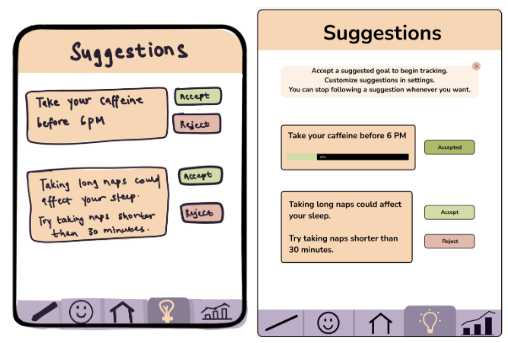 Suggestions
Take your caffeine
before 6pm
Accept
Reject
Taking long naps could
affect your sleep.
Try taking naps shorter
than 30 minutes.
Accept
Reject
Suggestions
Accept a suggested goal to begin tracking.
Customize suggestions in settings.
You can stop following a suggestion whenever you want.
Take your caffeine before 6 PM
Accepted
Taking long naps could affect
your sleep.
Try taking naps shorter than
30 minutes.
Accept
Reject